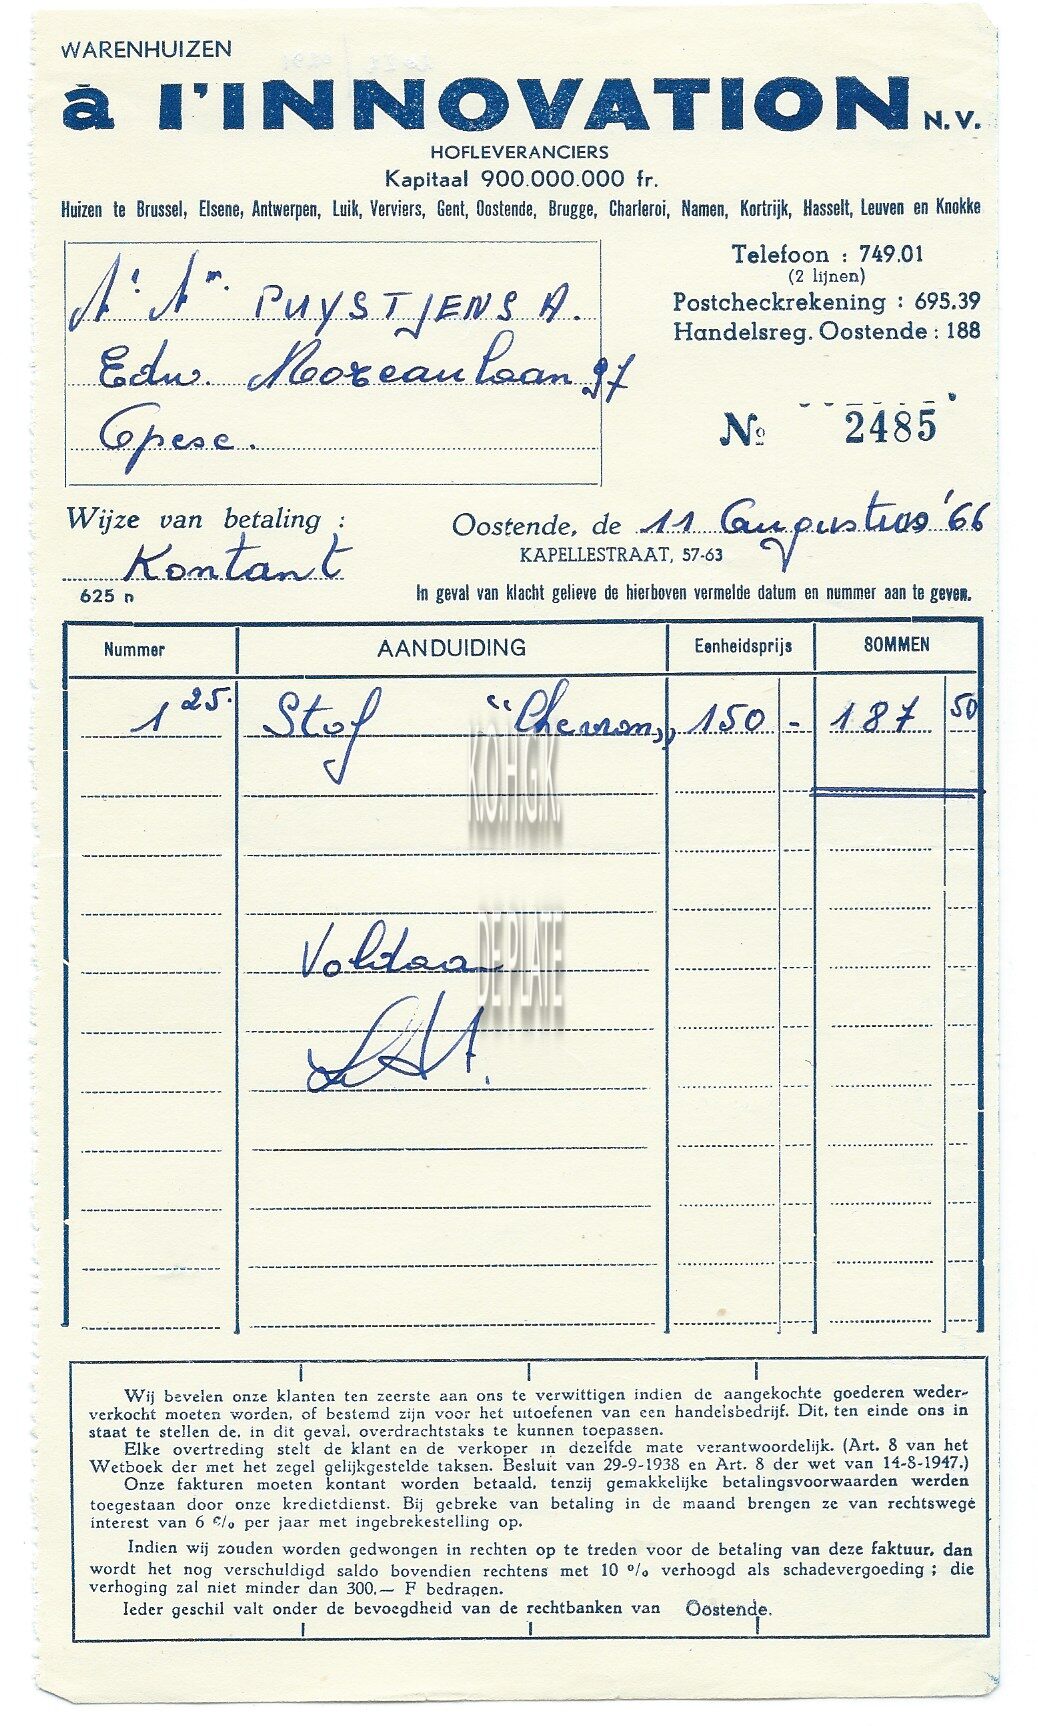 WARENHUIZEN
à l'INNOVATION N.V.
HOFLEVERANCIERS
Kapitaal 900.000.000 fr.
Huizen te Brussel, Elsene, Antwerpen, Luik, Verviers, Gent, Oostende, Brugge, Charleroi, Namen, Kortrijk, Hasselt, Leuven en Knokke
Telefoon : 749.01
(2 lijnen)
Postcheckrekening : 695.39
Handelsreg. Oostende : 188
PUYSTJENS A.
Edw. Moreaulaan 97
No 2485
Wijze van betaling :
Kontant
625 n
Oostende, de 11 Augustus '66
KAPELLESTRAAT, 57-63
In geval van klacht gelieve de hierboven vermelde datum en nummer aan te geven.
Nummer AANDUIDING Eenheidsprijs SOMMEN
1 25. Stof "Chevron" 150 - 187 50
K.O.H.G.K.
DE PLATE
Voldaan
Wij bevelen onze klanten ten zeerste aan ons te verwittigen indien de aangekochte goederen weder-
verkocht moeten worden, of bestemd zijn voor het uitoefenen van een handelsbedrijf. Dit, ten einde ons in
staat te stellen de, in dit geval, overdrachtstaks te kunnen toepassen.
Elke overtreding stelt de klant en de verkoper in dezelfde mate verantwoordelijk. (Art. 8 van het
Wetboek der met het zegel gelijkgestelde taksen. Besluit van 29-9-1938 en Art. 8 der wet van 14-8-1947.)
Onze fakturen moeten kontant worden betaald, tenzij gemakkelijke betalingsvoorwaarden werden
toegestaan door onze kredietdienst. Bij gebreke van betaling in de maand brengen ze van rechtswege
interest van 6 % per jaar met ingebrekestelling op.
Indien wij zouden worden gedwongen in rechten op te treden voor de betaling van deze faktuur, dan
wordt het nog verschuldigd saldo bovendien rechtens met 10 % verhoogd als schadevergoeding ; die
verhoging zal niet minder dan 300,— F bedragen.
Ieder geschil valt onder de bevoegdheid van de rechtbanken van Oostende.